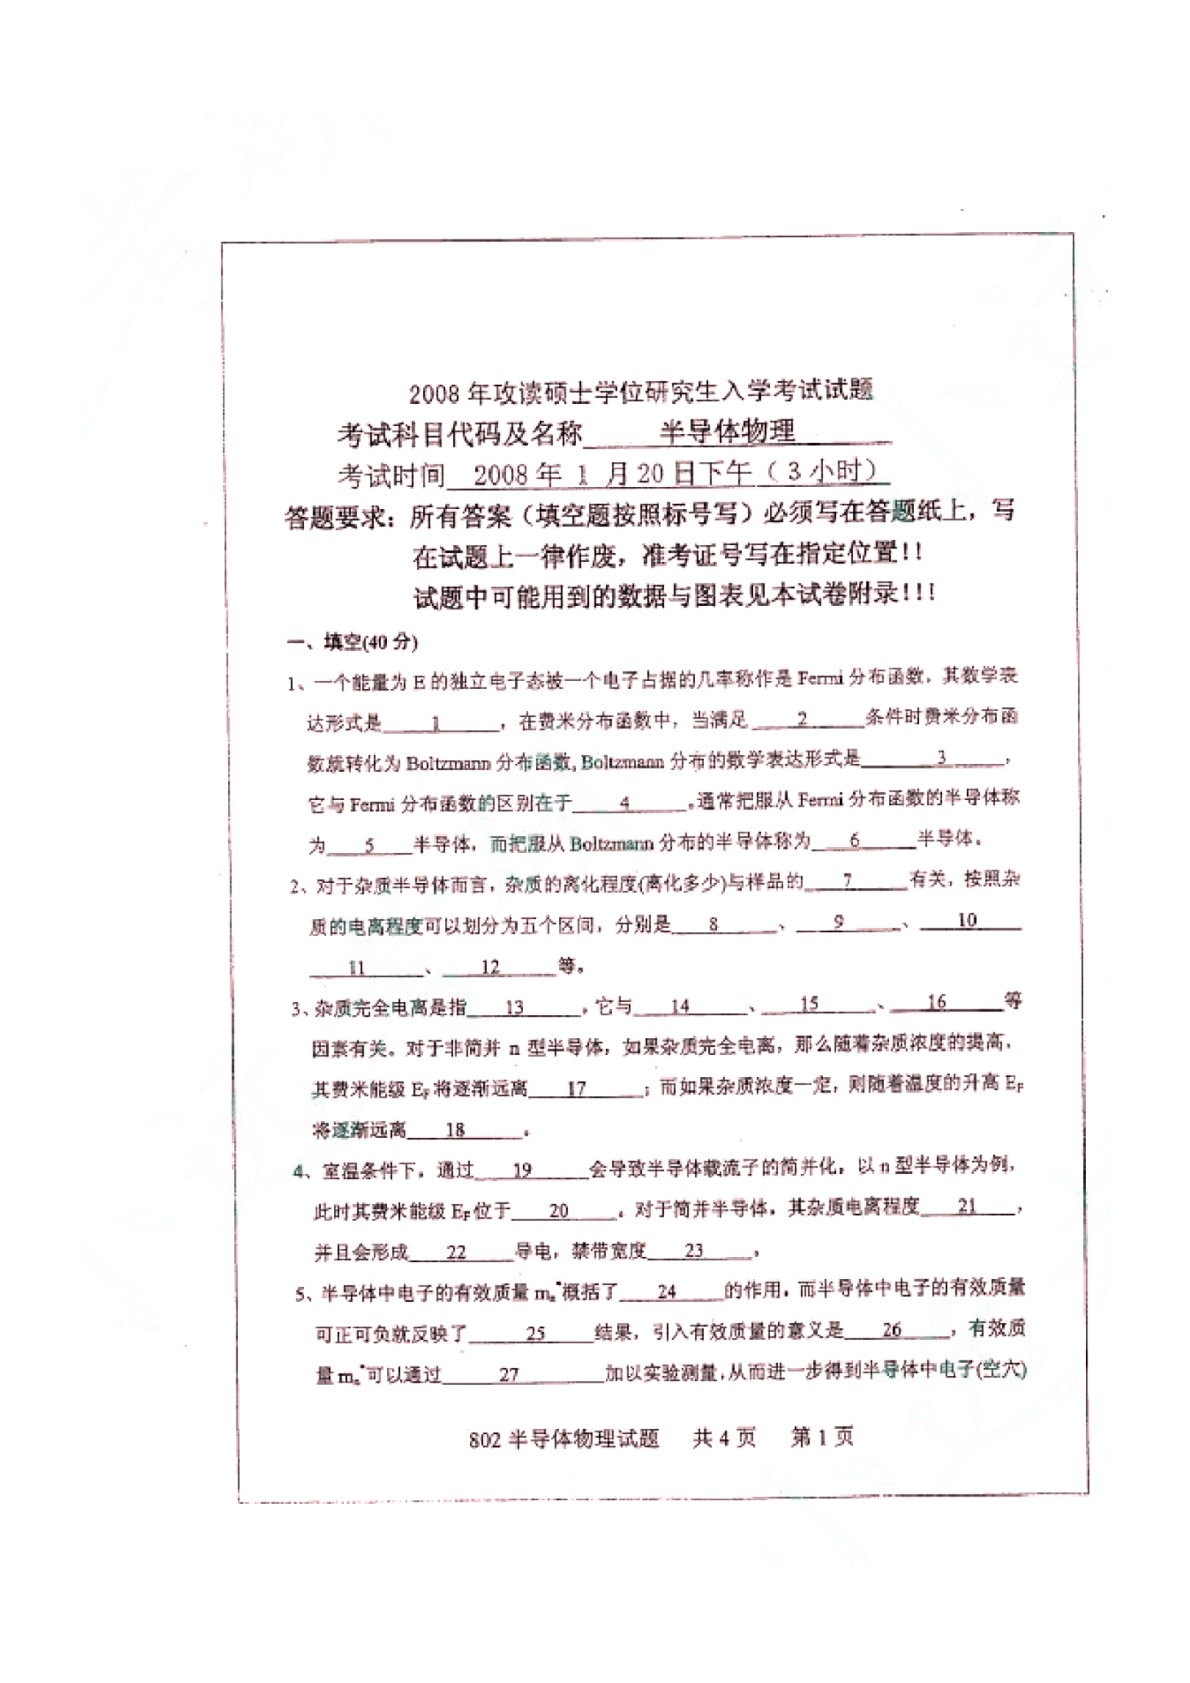 2008 年攻读硕士学位研究生入学考试试题
考试科目代码及名称 半导体物理
考试时间 2008 年 1 月 20 日下午（3 小时）
答题要求：所有答案（填空题按照标号写）必须写在答题纸上，写
在试题上一律作废，准考证号写在指定位置！！
试题中可能用到的数据与图表见本试卷附录！！！
一、填空(40 分)
1、一个能量为 E 的独立电子态被一个电子占据的几率称作是 Fermi 分布函数，其数学表
达形式是 1 ，在费米分布函数中，当满足 2 条件时费米分布函
数就转化为 Boltzmann 分布函数, Boltzmann 分布的数学表达形式是 3 ，
它与 Fermi 分布函数的区别在于 4 。通常把服从 Fermi 分布函数的半导体称
为 5 半导体，而把服从 Boltzmann 分布的半导体称为 6 半导体。
2、对于杂质半导体而言，杂质的离化程度(离化多少)与样品的 7 有关，按照杂
质的电离程度可以划分为五个区间，分别是 8 、 9 、 10
11 、 12 等。
3、杂质完全电离是指 13 ，它与 14 、 15 、 16 等
因素有关。对于非简并 n 型半导体，如果杂质完全电离，那么随着杂质浓度的提高，
其费米能级 EF 将逐渐远离 17 ；而如果杂质浓度一定，则随着温度的升高 EF
将逐渐远离 18 。
4、室温条件下，通过 19 会导致半导体载流子的简并化，以 n 型半导体为例，
此时其费米能级 EF 位于 20 。对于简并半导体，其杂质电离程度 21 ，
并且会形成 22 导电，禁带宽度 23 。
5、半导体中电子的有效质量 mn*概括了 24 的作用，而半导体中电子的有效质量
可正可负就反映了 25 结果，引入有效质量的意义是 26 ，有效质
量 mn*可以通过 27 加以实验测量，从而进一步得到半导体中电子(空穴)
802 半导体物理试题 共 4 页 第 1 页